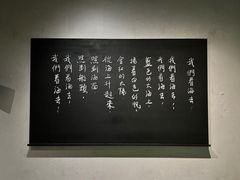 我們看海去
我們看海去！
我們看海去！
藍色的大海上，
揚著白色的帆，
金紅的太陽
從海上升起來，
照到海面
照到船頭，
我們看海去！
我們看海去！